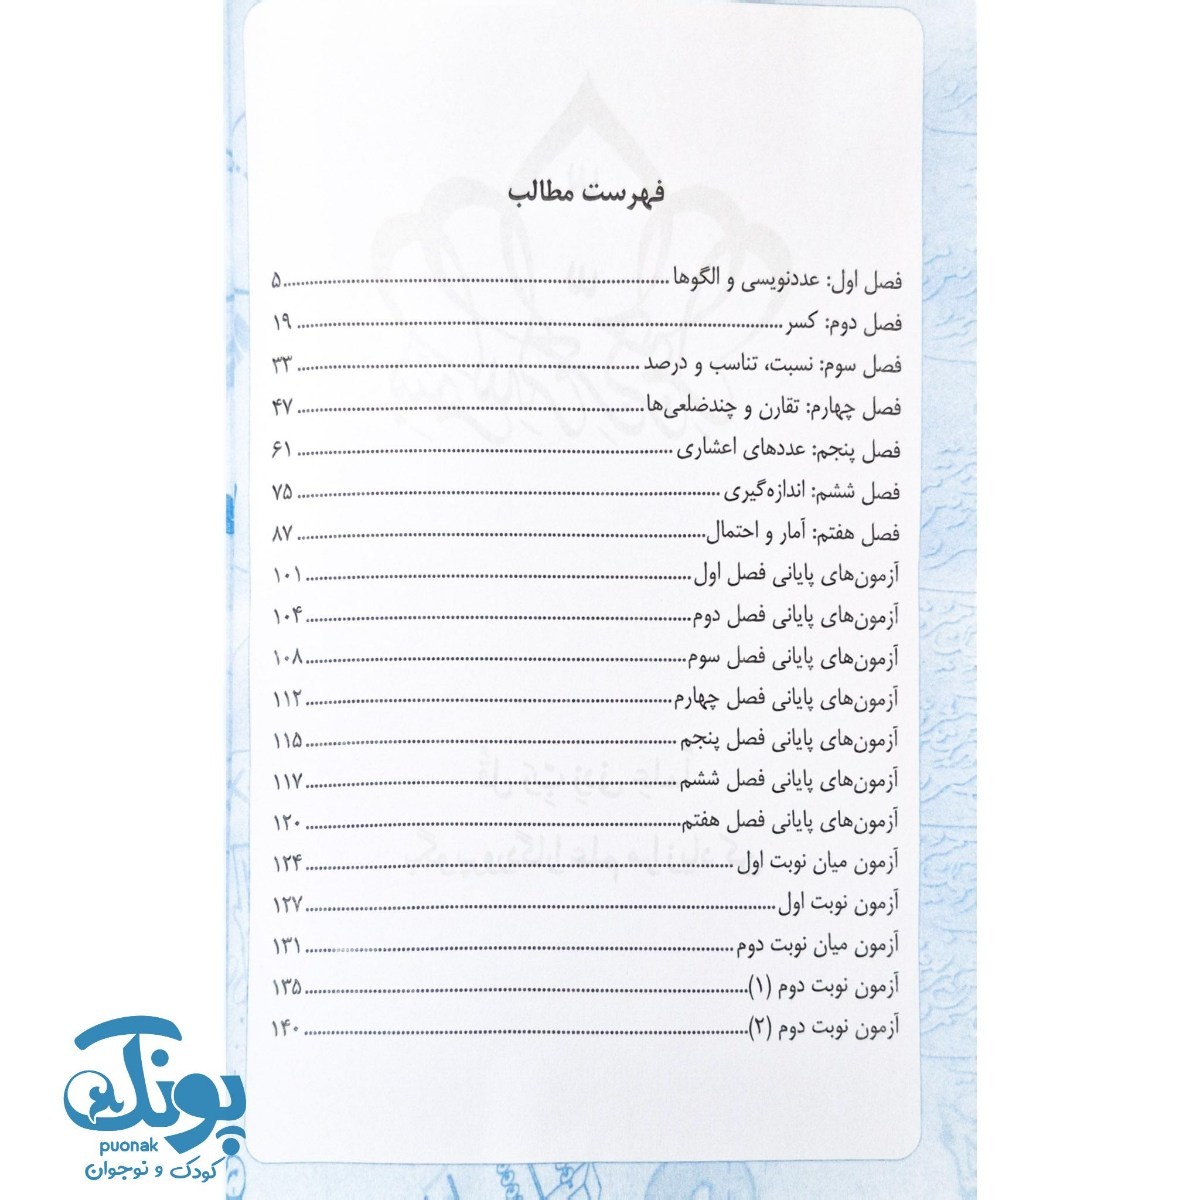 فهرست مطالب
فصل اول: عددنویسی و الگوها ۵
فصل دوم: کسر ۱۹
فصل سوم: نسبت، تناسب و درصد ۳۳
فصل چهارم: تقارن و چندضلعی‌ها ۴۷
فصل پنجم: عددهای اعشاری ۶۱
فصل ششم: اندازه‌گیری ۷۵
فصل هفتم: آمار و احتمال ۸۷
آزمون‌های پایانی فصل اول ۱۰۱
آزمون‌های پایانی فصل دوم ۱۰۴
آزمون‌های پایانی فصل سوم ۱۰۸
آزمون‌های پایانی فصل چهارم ۱۱۲
آزمون‌های پایانی فصل پنجم ۱۱۵
آزمون‌های پایانی فصل ششم ۱۱۷
آزمون‌های پایانی فصل هفتم ۱۲۰
آزمون میان نوبت اول ۱۲۴
آزمون نوبت اول ۱۲۷
آزمون میان نوبت دوم ۱۳۱
آزمون نوبت دوم (۱) ۱۳۵
آزمون نوبت دوم (۲) ۱۴۰
پونک
puonak
کودک و نوجوان